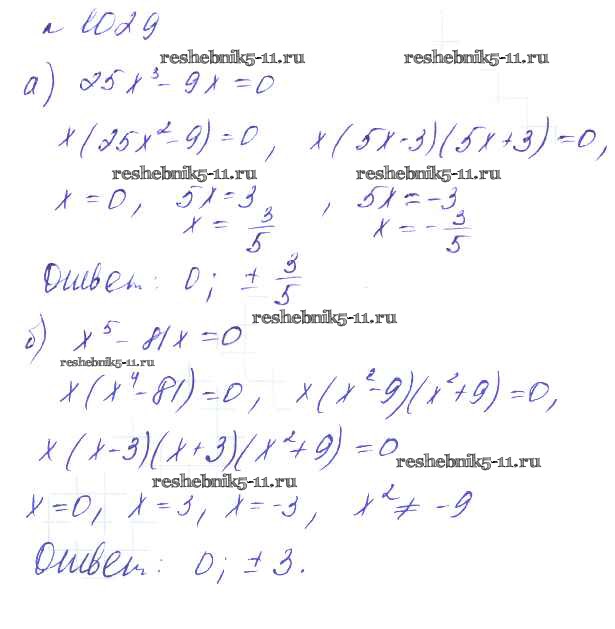 № 1029
reshebnik5-11.ru reshebnik5-11.ru
а) 25x³ - 9x = 0
x(25x² - 9) = 0, x(5x-3)(5x+3) = 0,
reshebnik5-11.ru reshebnik5-11.ru
x = 0, 5x = 3, 5x = -3
x = 3/5 x = -3/5
Ответ: 0; ± 3/5
reshebnik5-11.ru
б) x⁵ - 81x = 0
reshebnik5-11.ru
x(x⁴-81) = 0, x(x²-9)(x²+9) = 0,
x(x-3)(x+3)(x²+9) = 0
reshebnik5-11.ru
reshebnik5-11.ru
x = 0, x = 3, x = -3, x² ≠ -9
Ответ: 0; ± 3.